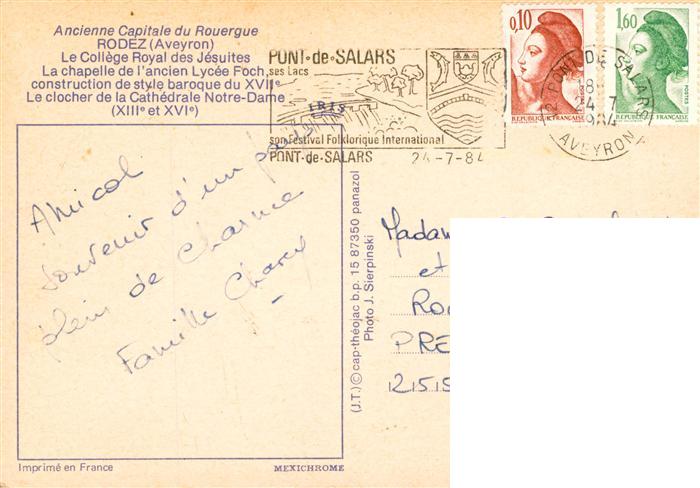 Ancienne Capitale du Rouergue
RODEZ (Aveyron)
Le Collège Royal des Jésuites
La chapelle de l'ancien Lycée Foch,
construction de style baroque du XVIIe
Le clocher de la Cathédrale Notre-Dame
(XIIIe et XVIe)
PONT-de-SALARS
ses Lacs
IBIS
son Festival Folklorique International
PONT-de-SALARS 24-7-84
0,10
REPUBLIQUE FRANÇAISE
1,60
REPUBLIQUE FRANÇAISE
12 PONT DE SALARS
18
24-7
1984
AVEYRON
Amical
souvenir d'un pays
plein de charme
Famille
(J.T.) © cap-théojac b.p. 15 87350 panazol
Photo J. Sierpinski
Madam
et
Ro
PRE
21515
Imprimé en France
MEXICHROME